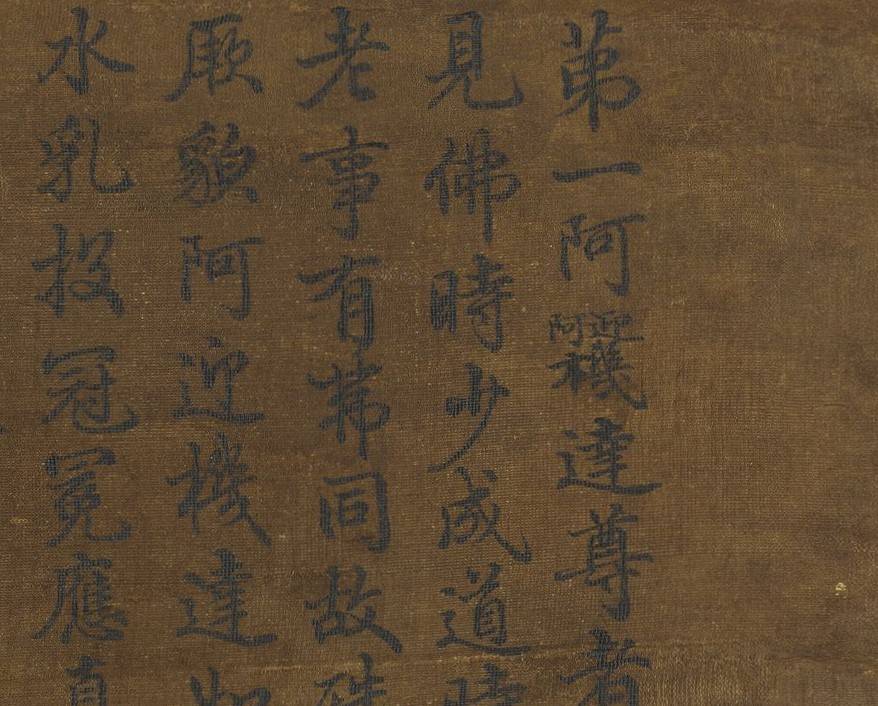 第一阿迎阿機達尊者
見佛時少成道時
老事有同故殊
厥貌阿迎機達如
水乳投冠冕應真